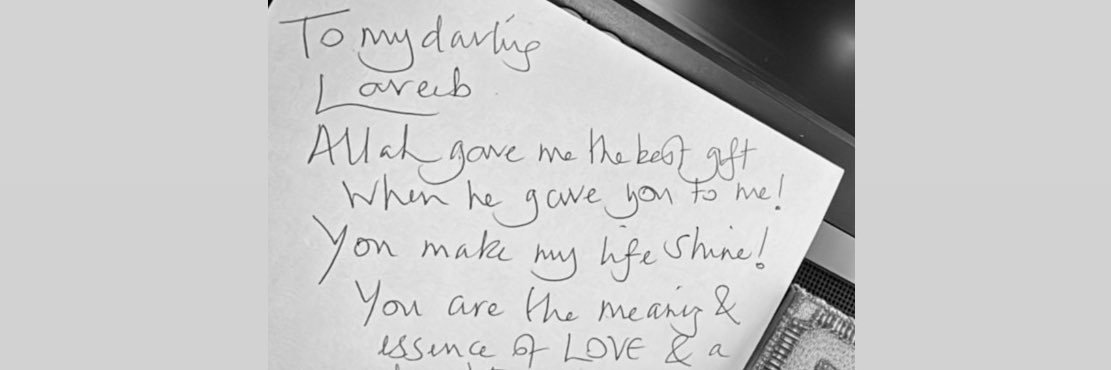 To my darling
Lareeb
Allah gave me the best gift
When he gave you to me!
You make my life shine!
You are the meaning &
essence of LOVE & a